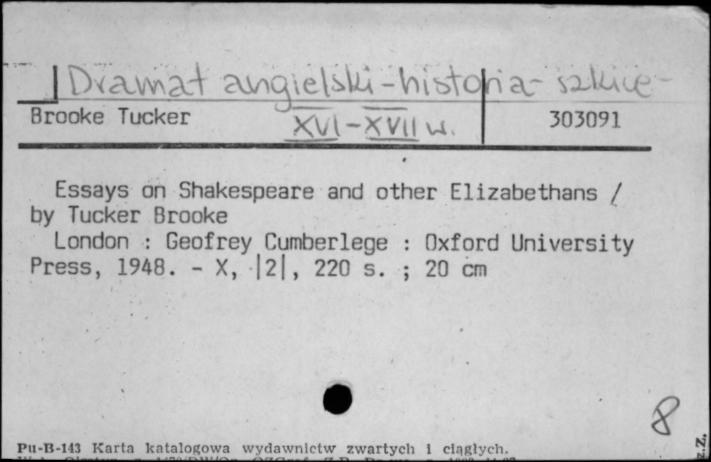 Dramat angielski - historia - szkice -
XVI - XVII w.
Brooke Tucker
303091
Essays on Shakespeare and other Elizabethans /
by Tucker Brooke
London : Geofrey Cumberlege : Oxford University
Press, 1948. - X, |2|, 220 s. ; 20 cm
8
Pu-B-143 Karta katalogowa wydawnictw zwartych i ciągłych.
z.Z.